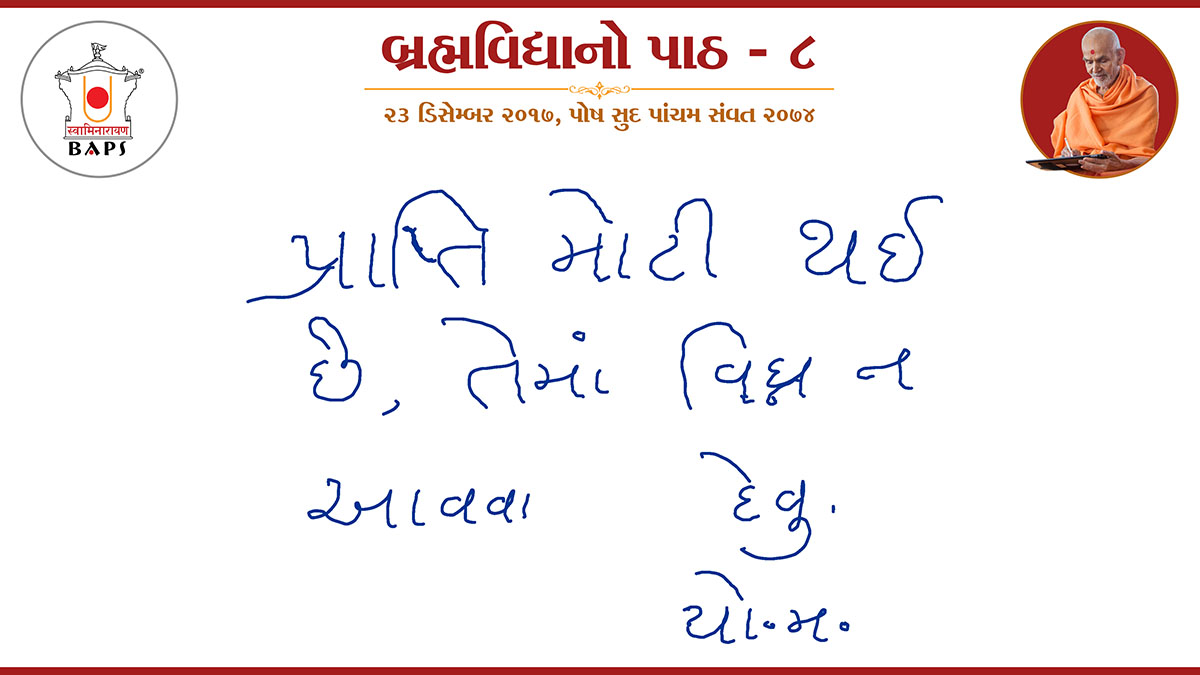 બ્રહ્મવિદ્યાનો પાઠ - ૮
૨૩ ડિસેમ્બર ૨૦૧૭, પોષ સુદ પાંચમ સંવત ૨૦૭૪
स्वामिनारायण
BAPS
પ્રાપ્તિ મોટી થઈ
છે, તેમાં વિઘ્ન ન
આવવા દેવુ.
યો.મ.